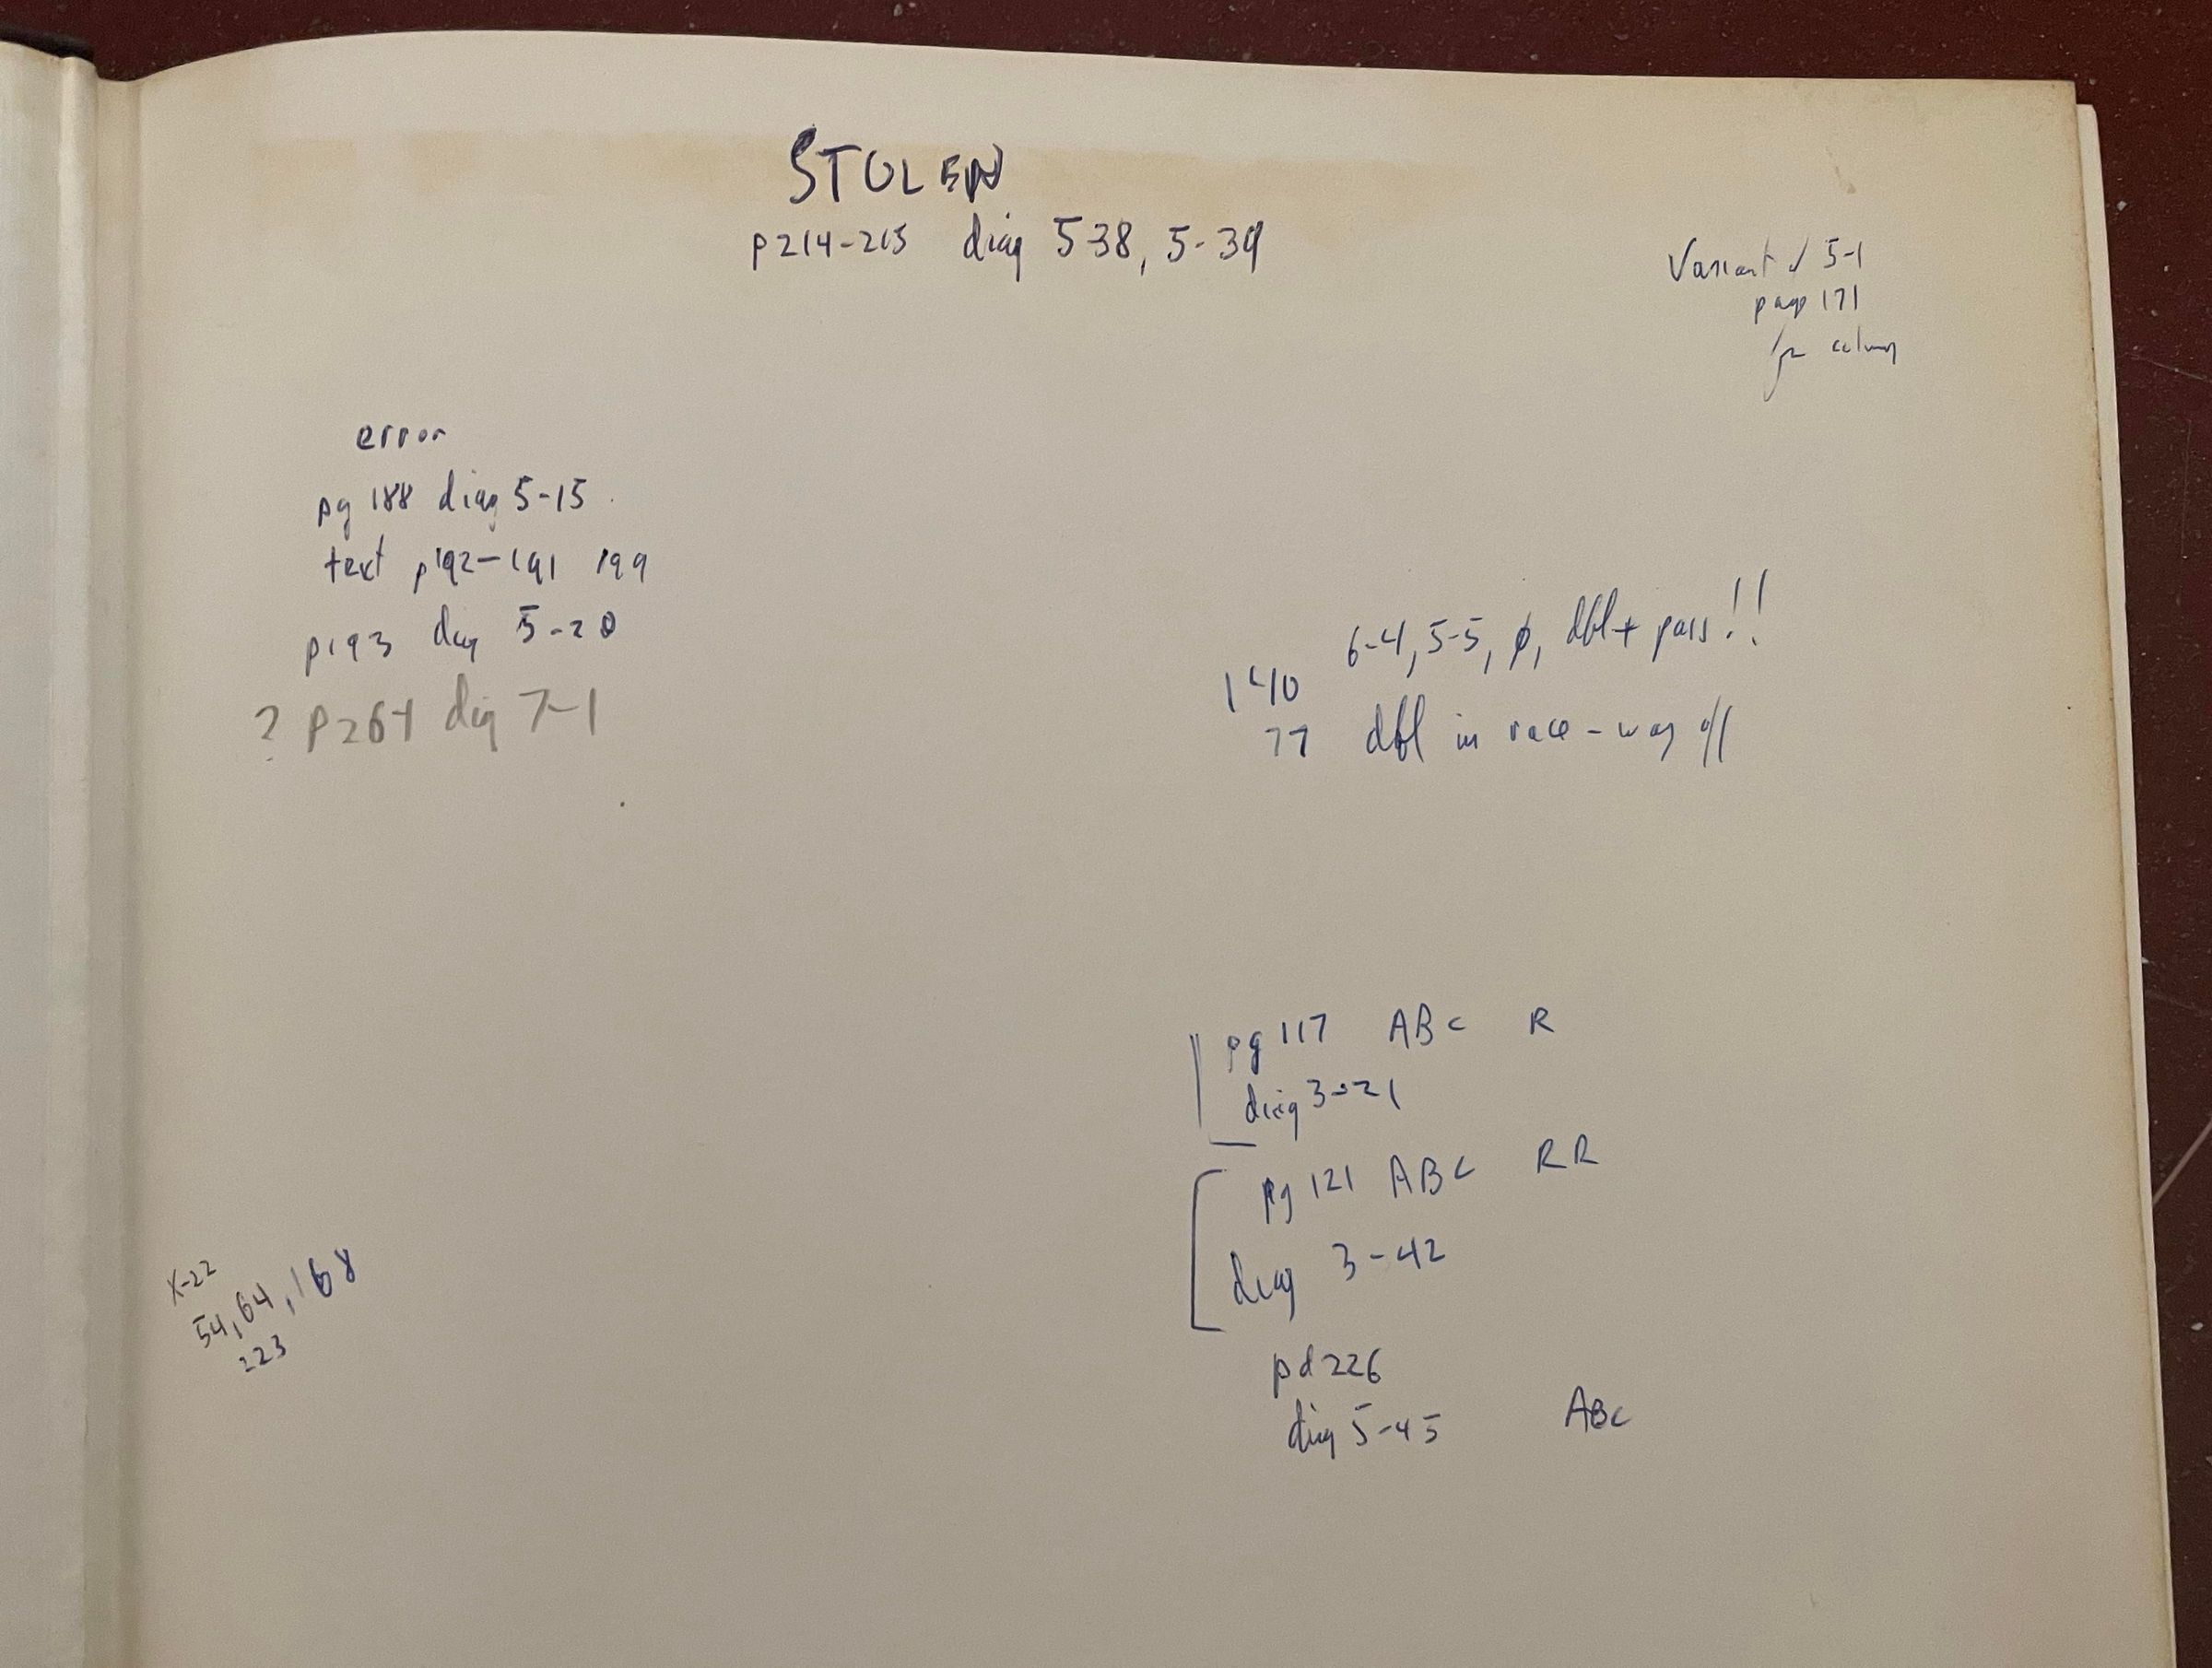 STOLEN
p214-215 diag 5-38, 5-39
Variant 5-1
page 171
for column
error
pg 188 diag 5-15
text p192-191 199
p193 diag 5-20
? p264 diag 7-1
6-4, 5-5, φ, dbl + pass!!
140
77 dbl in race - way off
pg 117 ABC R
diag 3-21
pg 121 ABC RR
diag 3-42
X-22
54, 64, 168
223
pd 226
diag 5-45 ABC